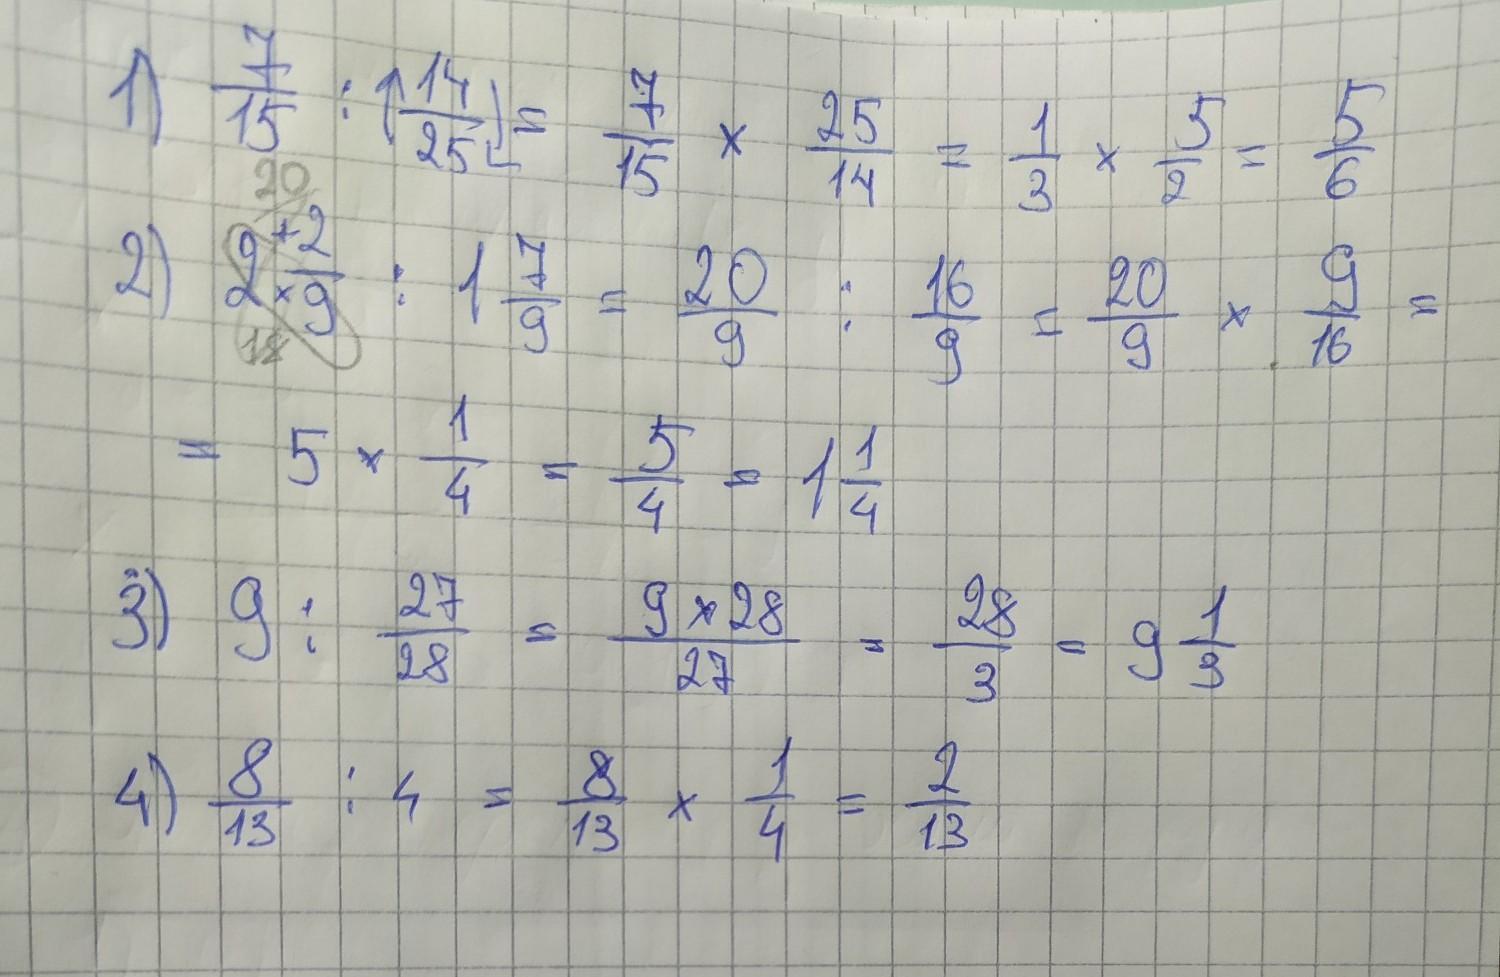 1) 7/15 : (14/25) = 7/15 × 25/14 = 1/3 × 5/2 = 5/6
20
2) 2 + 2/9 × : 1 7/9 = 20/9 : 16/9 = 20/9 × 9/16 =
18
= 5 × 1/4 = 5/4 = 1 1/4
3) 9 : 27/28 = 9 × 28/27 = 28/3 = 9 1/3
4) 8/13 : 4 = 8/13 × 1/4 = 2/13